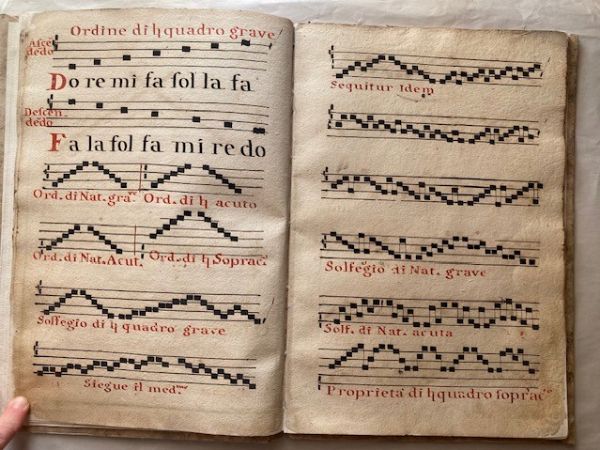 Ordine di ♮ quadro grave
Ascen
dedo
Do re mi fa sol la fa
Descen
dedo
Fa la sol fa mi re do
Ord. di Nat. gra.ve Ord. di ♮ acuto
Ord. di Nat. Acut. Ord. di ♮ Soprac.
Solfegio di ♮ quadro grave
Siegue il med.mo
Sequitur Idem
Solfegio di Nat. grave
Solf. di Nat. acuta
Proprieta di ♮ quadro soprac.